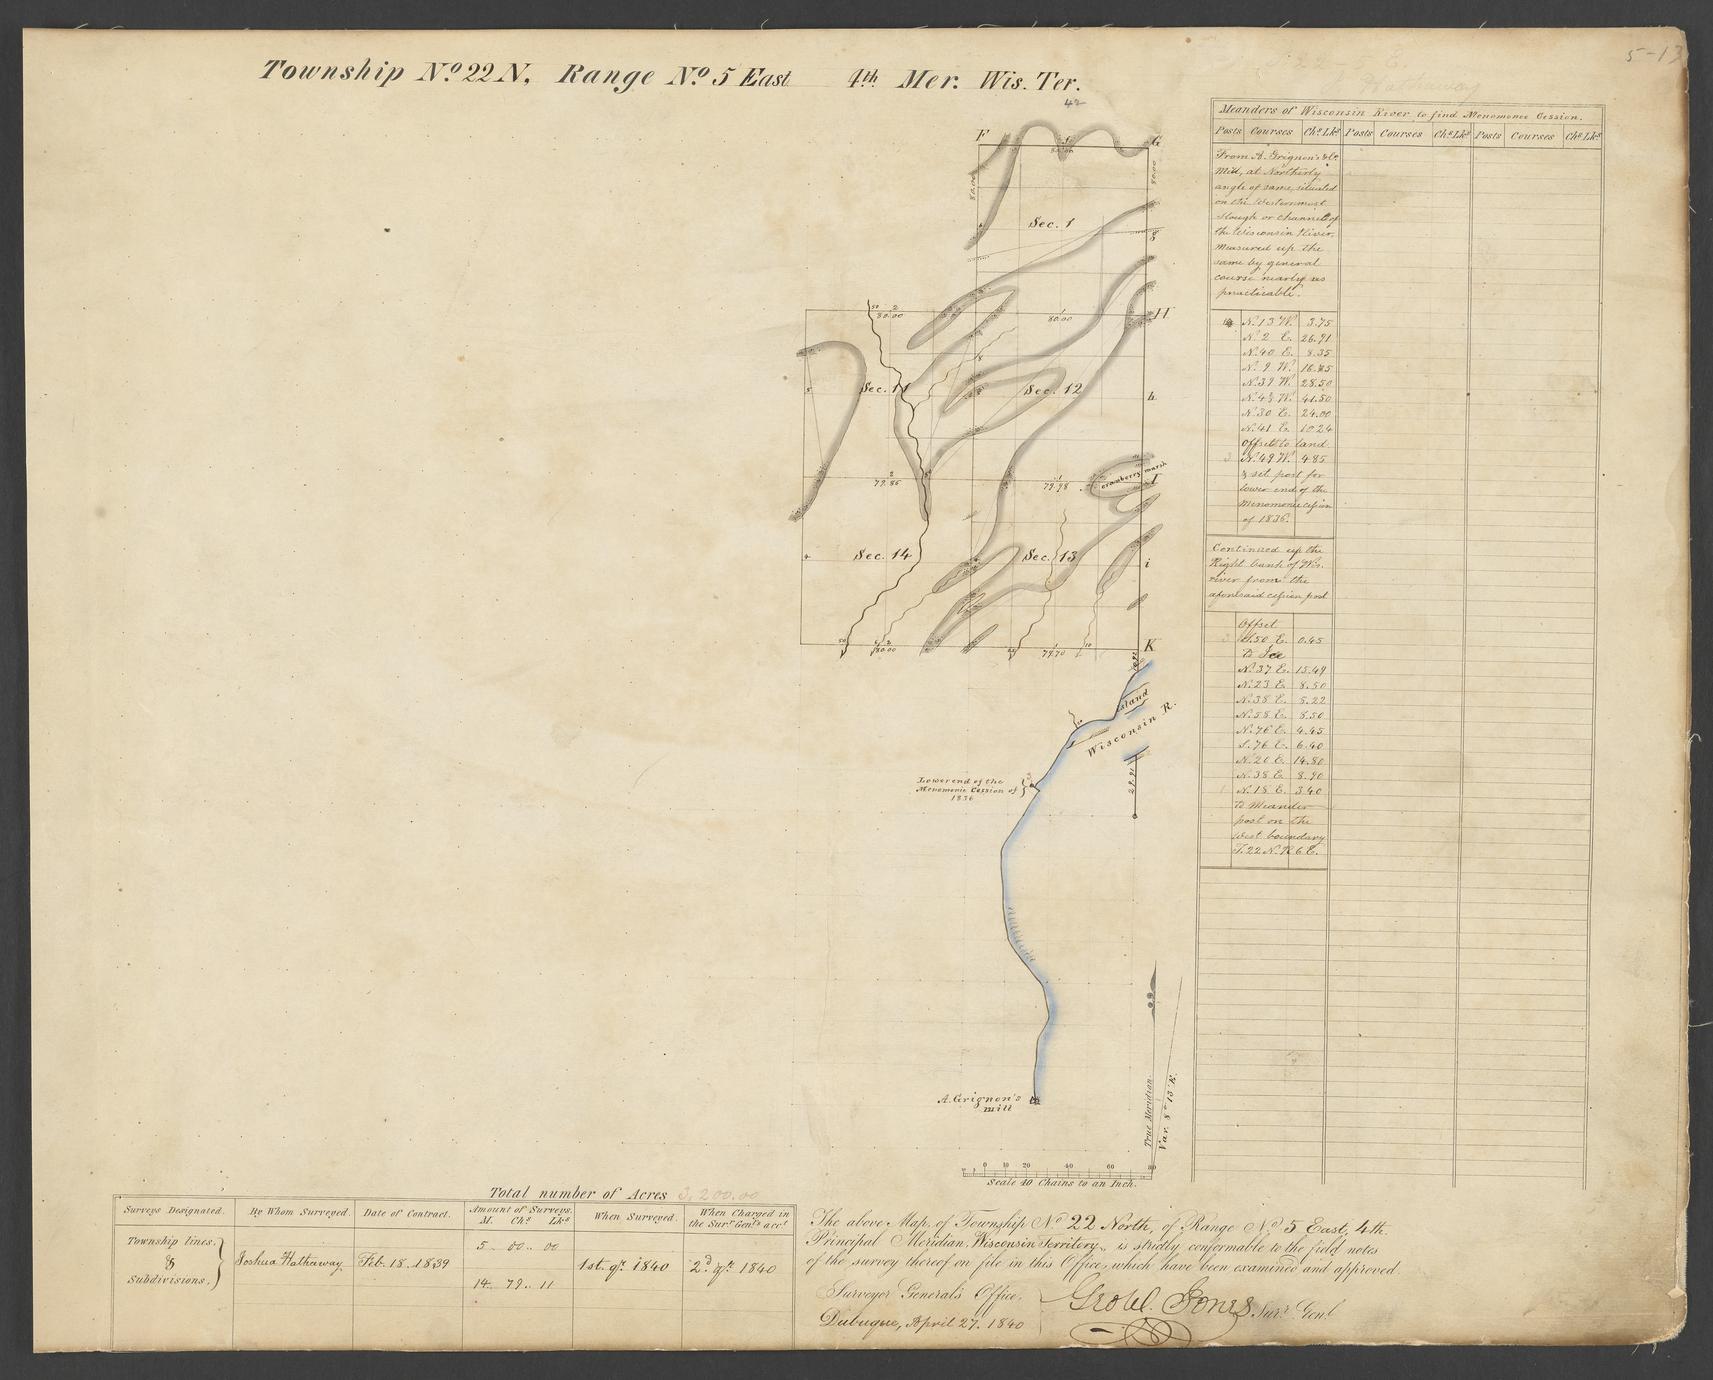 5-13
Township No. 22 N, Range No. 5 East 4th Mer. Wis. Ter.
42
F
G
80.00
80.00
80.00
Sec. 1
g
H
50
2
80.00
1
80.00
Sec. 11
Sec. 12
h
2
79.86
1
79.98
cranberry marsh
I
Sec. 14
Sec. 13
i
50
2
80.00
79.70
10
K
Island
Wisconsin R.
Lower end of the
Menomonie Cession of
1836
A. Grignon's
mill
True Meridian.
Var. 8° 13' E.
0 10 20 40 60 80
Scale 40 Chains to an Inch.
Meanders of Wisconsin River to find Menomonee Cession.
Posts Courses Chs Lks Posts Courses Chs Lks Posts Courses Chs Lks
From A. Grignon's & Co.
Mill, at Northerly
angle of same, situated
on the Westernmost
slough or channel of
the Wisconsin River,
measured up the
same by general
course nearly as
practicable.
N. 13 W. 3.75
N. 2 E. 26.91
N. 40 E. 8.35
N. 9 W. 16.85
N. 39 W. 28.50
N. 43 W. 41.50
N. 30 E. 24.00
N. 41 E. 10.24
Offset to land
N. 49 W. 4.85
& set post for
lower end of the
Menomonie cession
of 1836.
Continued up the
Right bank of Wis.
river from the
aforesaid cession post
Offset
S. 50 E. 0.45
N. 37 E. 15.49
N. 23 E. 8.50
N. 38 E. 5.22
N. 58 E. 8.50
N. 76 E. 4.45
S. 76 E. 6.40
N. 20 E. 14.80
N. 38 E. 8.90
N. 18 E. 3.40
To Meander
post on the
West boundary
T. 22 N. R 6 E.
Total number of Acres 3,200.00
Surveys Designated. By Whom Surveyed. Date of Contract. Amount of Surveys. M. Chs Lks When Surveyed. When Charged in the Surr Genls acct
Township lines. 5 .. 00 .. 00
& Joshua Hathaway Feb. 18. 1839 1st. qr. 1840 2d qr. 1840
Subdivisions. 14 .. 79 .. 11
The above Map of Township No 22 North, of Range No 5 East, 4th.
Principal Meridian, Wisconsin Territory, is strictly conformable to the field notes
of the survey thereof on file in this Office, which have been examined and approved
Surveyor General's Office.
Dubuque, April 27. 1840
Geo W. Jones Surr Genl